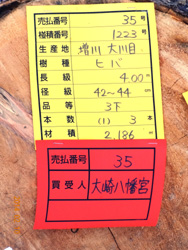 売払番号 35 号
椪積番号 1223 号
生産地 増川 大川目
樹種 ヒバ
長級 4.00 m
径級 42~44 cm
品等 3下
本数 (1) 3 本
材積 2,186 m³
売払番号 35
買受人 大崎八幡宮